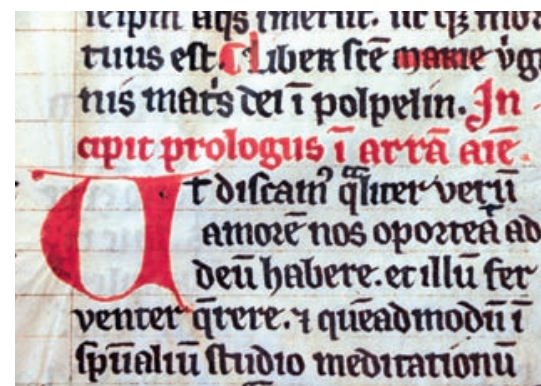 tuus est. Liber sce marie v̄gi
nis mat's dei ī polpelin. In
cipit prologus ī arrā aīe.
Ut discam' q̄liter verū
amorē nos oporteat ad
deū habere. et illū fer
venter q̄rere. ⁊ quēadmodū ī
sp̄ualiū studio meditationū